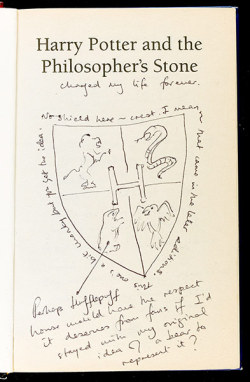 Harry Potter and the
Philosopher's Stone
changed my life forever.
No shield here – crest I mean
that came in the later editions.
This one's a bit wonky but you get the idea.
H
Perhaps Hufflepuff
house would have the respect
it deserves from fans if I'd
stayed with my original
idea of a bear to
represent it?